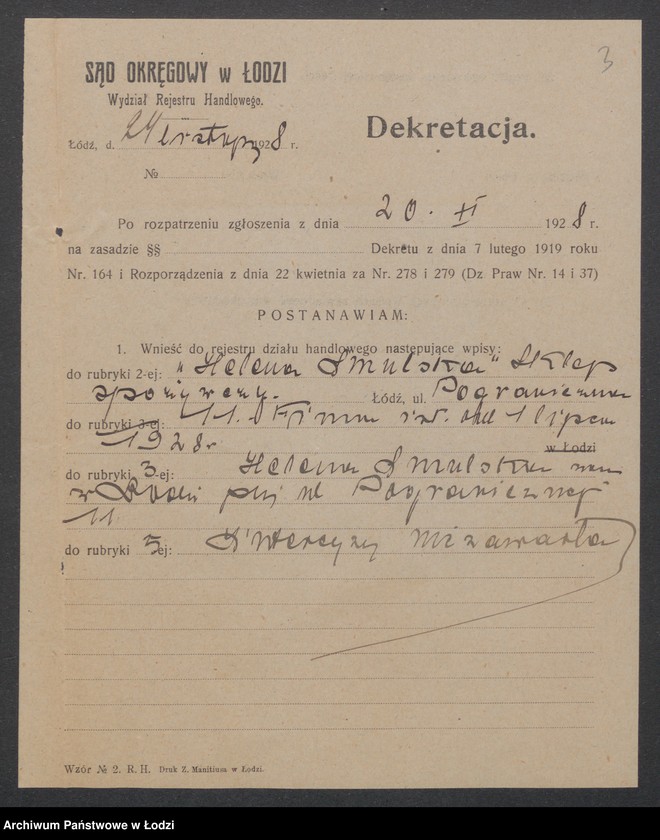 3
SĄD OKRĘGOWY w ŁODZI
Wydział Rejestru Handlowego.
Łódź, d. 24 listop 1928 r.
Dekretacja.
№
Po rozpatrzeniu zgłoszenia z dnia 20. XI 1928 r.
na zasadzie §§ Dekretu z dnia 7 lutego 1919 roku
Nr. 164 i Rozporządzenia z dnia 22 kwietnia za Nr. 278 i 279 (Dz. Praw Nr. 14 i 37)
POSTANAWIAM:
1. Wnieść do rejestru działu handlowego następujące wpisy:
do rubryki 2-ej: "Helena Smulska" Sklep
spożywczy. Łódź, ul. Pograniczna
do rubryki 3-ej: 11. Firma ist. od 1 lipca
1928 r w Łodzi
do rubryki 3-ej: Helena Smulska zam
w Łodzi przy ul Pogranicznej
11.
do rubryki 5-ej: Intercyzy nie zawarła
Wzór № 2. R. H. Druk Z. Manitiusa w Łodzi.
Archiwum Państwowe w Łodzi